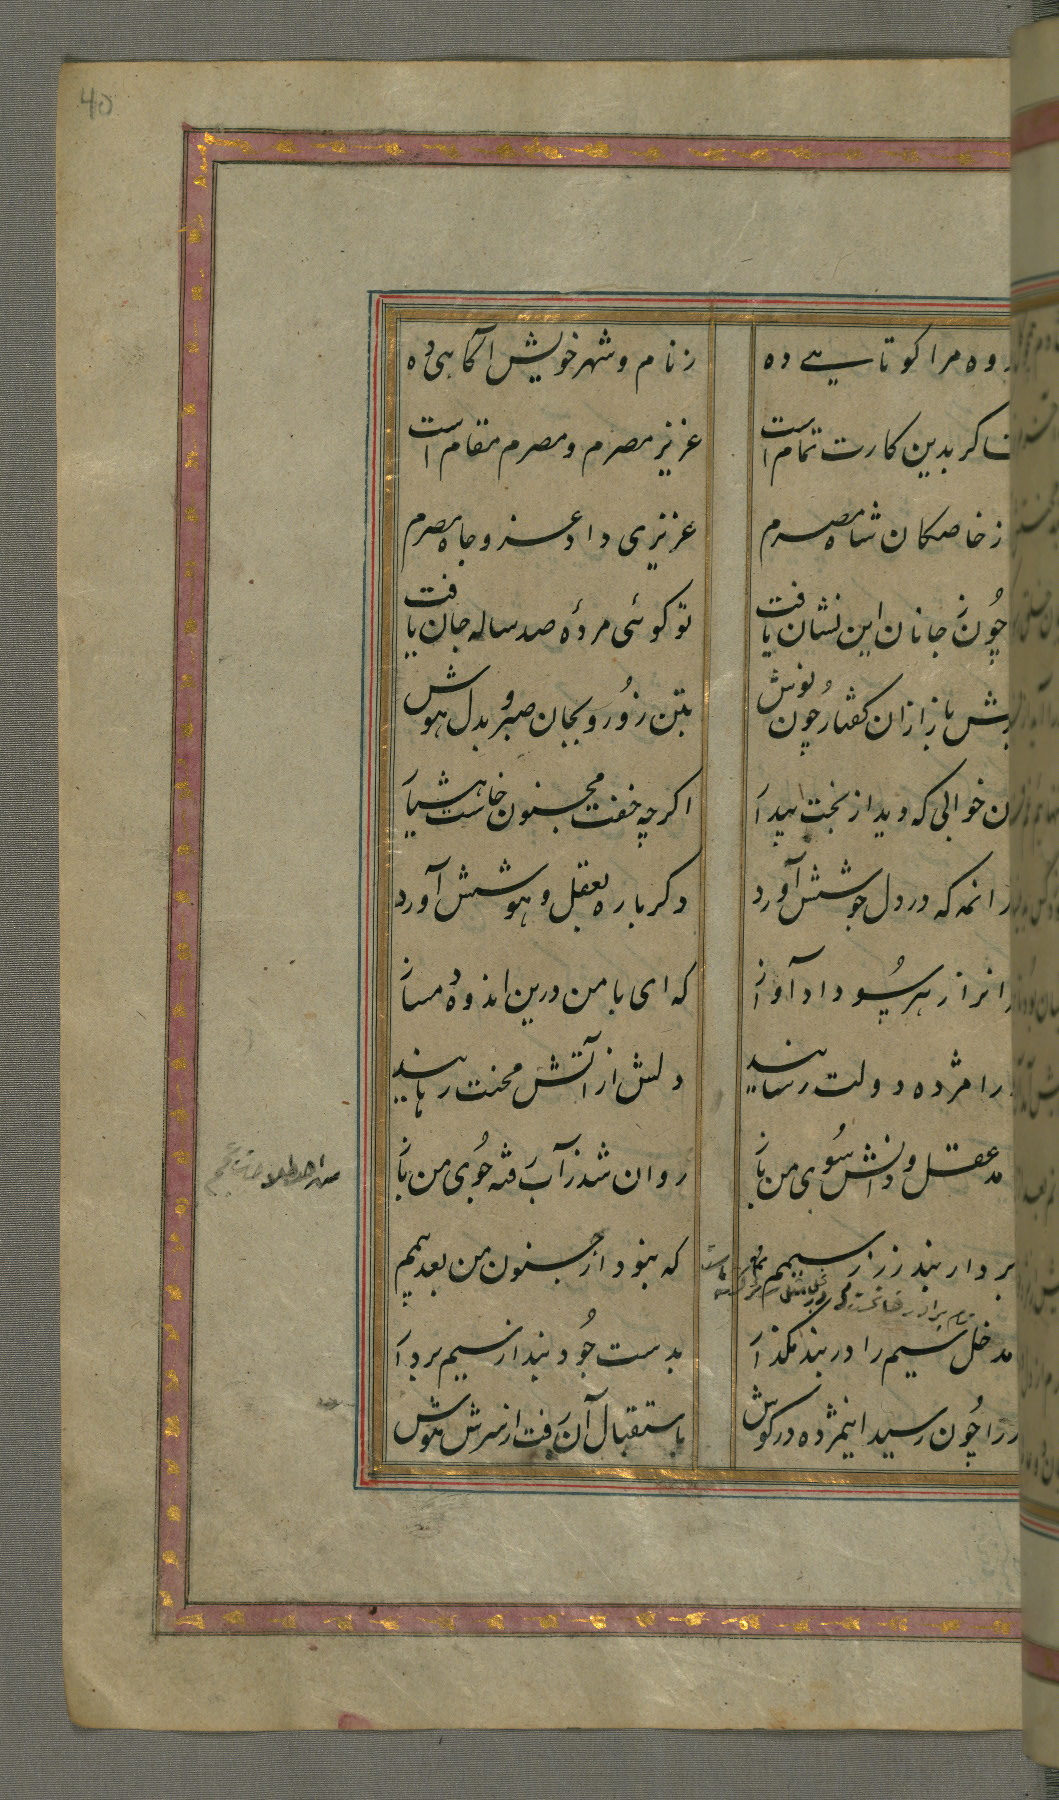 40
وه مرا کوتاهیے ده
ز نام و شهر خویش آکاهی ده
کر بدین کارت تمام است
عزیز مصرم و مصرم مقام است
ز خاصکان شاه مصرم
عزیزی داد عز و جاه مصرم
چون ز جانان این نشان یافت
تو کوئی مردهٔ صد ساله جان یافت
باز ازان کفتار چون نوش
بتن زور و بجان صبر و بدل هوش
خوابی که دید از بخت بیدار
اکرچه خفت مجنون خاست هشیار
که در دل جوشش آورد
دکر باره بعقل و هوشش آورد
از هر سو داد آواز
که ای با من درین اندوه دمساز
را مژده دولت رسانید
دلش از آتش محنت رهانید
عقل و دانش سوی من باز
روان شد ز آب رفته جوی من باز
بردار بند زر ز سیمم
که نبود از جنون من بعد بیمم
مدخل سیم را در بند مکذار
بدست جود بند از سیم بردار
را چون رسید این مژده در کوش
باستقبال آن رفت از سرش هوش